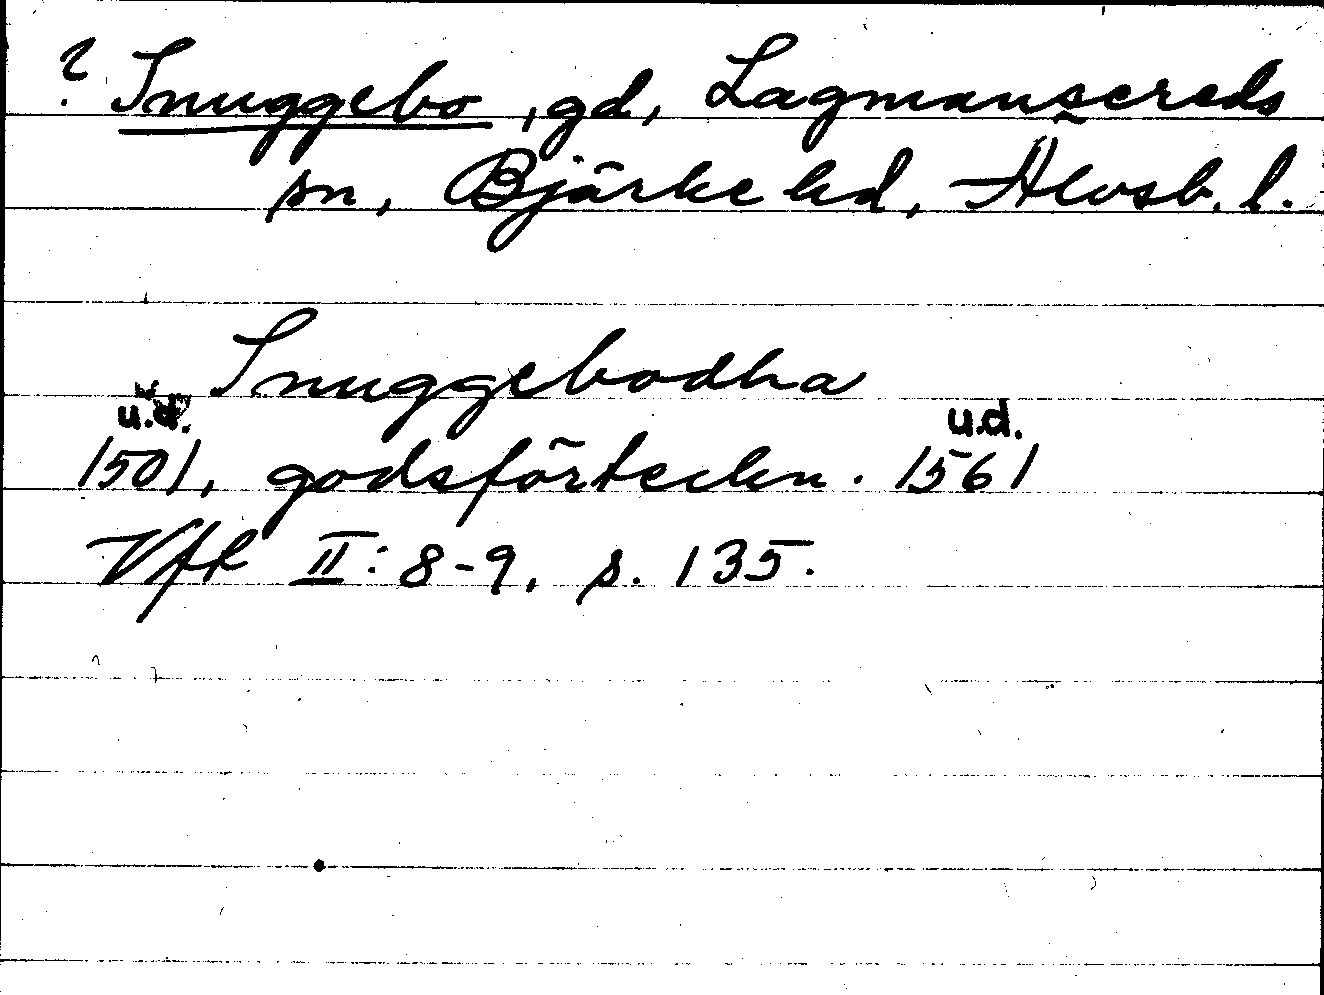 ? Snuggebo, gd, Lagmansereds
sn, Bjärke hd, Älvsb. l.
Snuggebodha
u.d. u.d.
1501, godsförteckn. 1561
Vfk II: 8-9, s. 135.